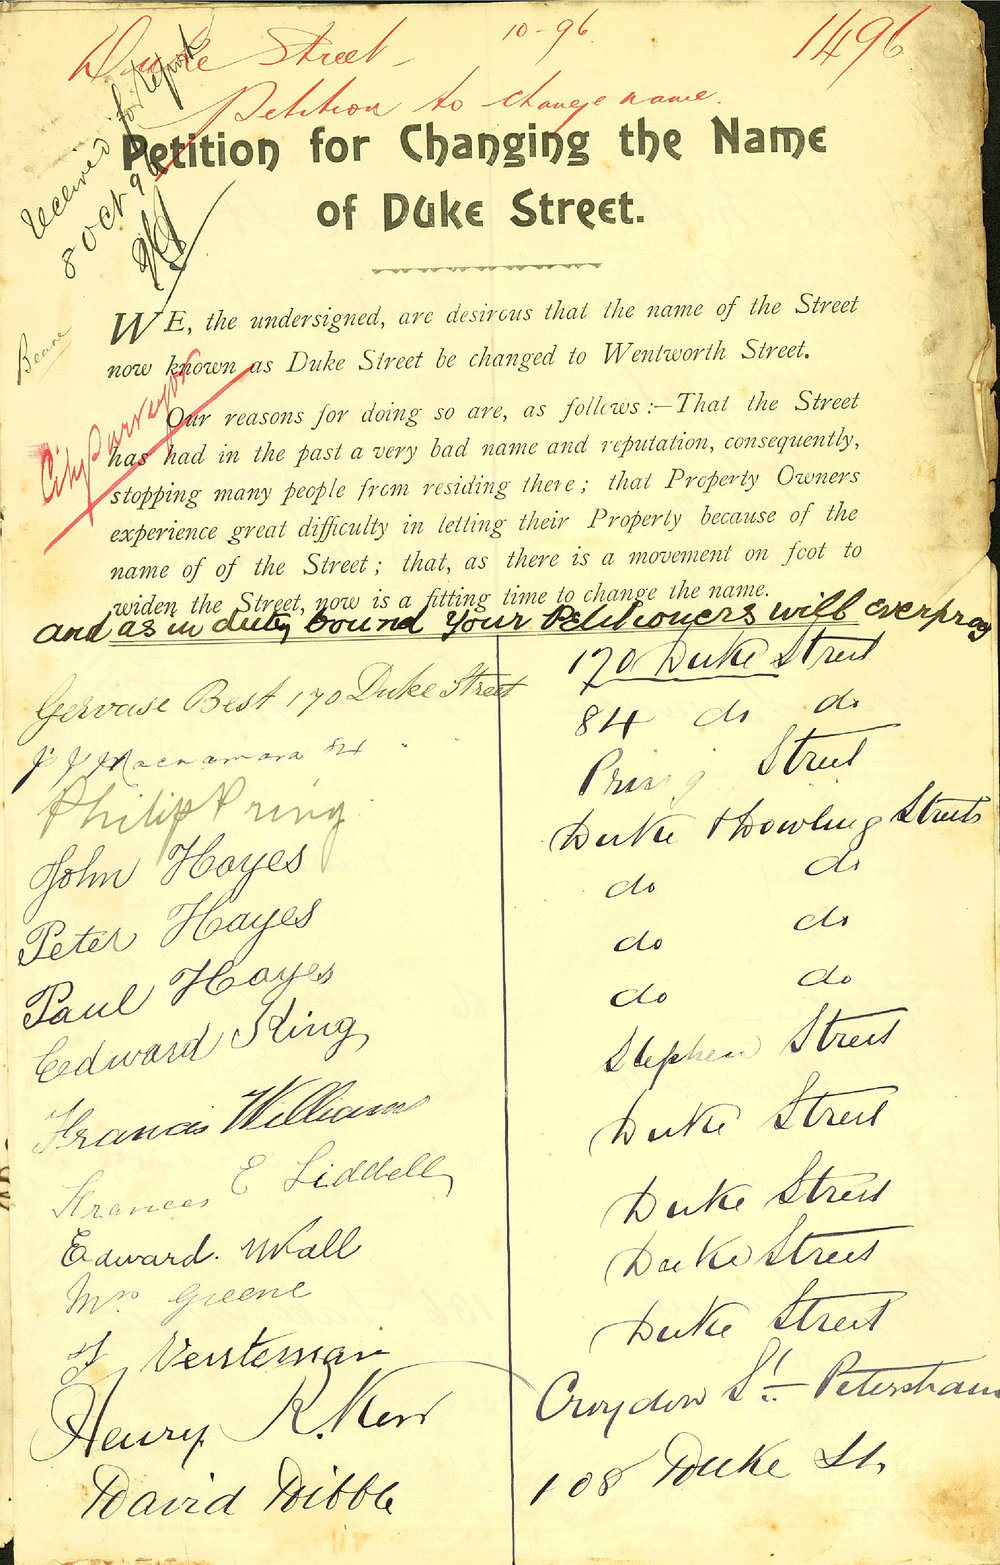 Duke Street -
10-96.
1496
Petition to change name.
Received for Report
8 Oct 96
Petition for Changing the Name
of Duke Street.
City Surveyor
WE, the undersigned, are desirous that the name of the Street
now known as Duke Street be changed to Wentworth Street.
Our reasons for doing so are, as follows:—That the Street
has had in the past a very bad name and reputation, consequently,
stopping many people from residing there; that Property Owners
experience great difficulty in letting their Property because of the
name of of the Street; that, as there is a movement on foot to
widen the Street, now is a fitting time to change the name.
and as in duty bound your Petitioners will ever pray
Gervase Best 170 Duke Street 170 Duke Street
J J Macnamara 84 " " 84 do do
Philip Pring Pring Street
John Hayes Duke & Dowling Streets
Peter Hayes do do
Paul Hayes do do
do do
Edward King Stephen Street
Francis Williams Duke Street
Frances E Liddell Duke Street
Edward Wall Duke Street
Mrs Greene Duke Street
Versteman
Henry R. Kerr Croydon St. Petersham
David Dibble 108 Duke St.